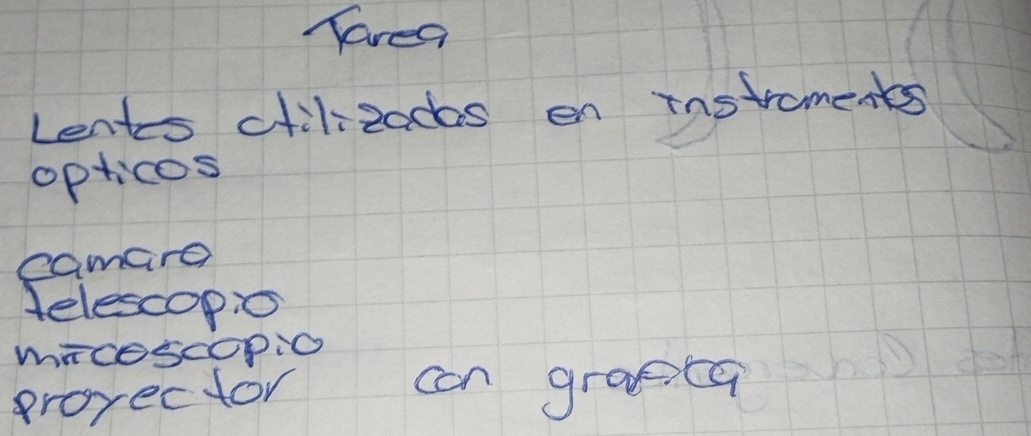 Tarea
Lentes utilizados en instrumentos
opticos
camara
telescopio
micoscopio
proyector con grafica